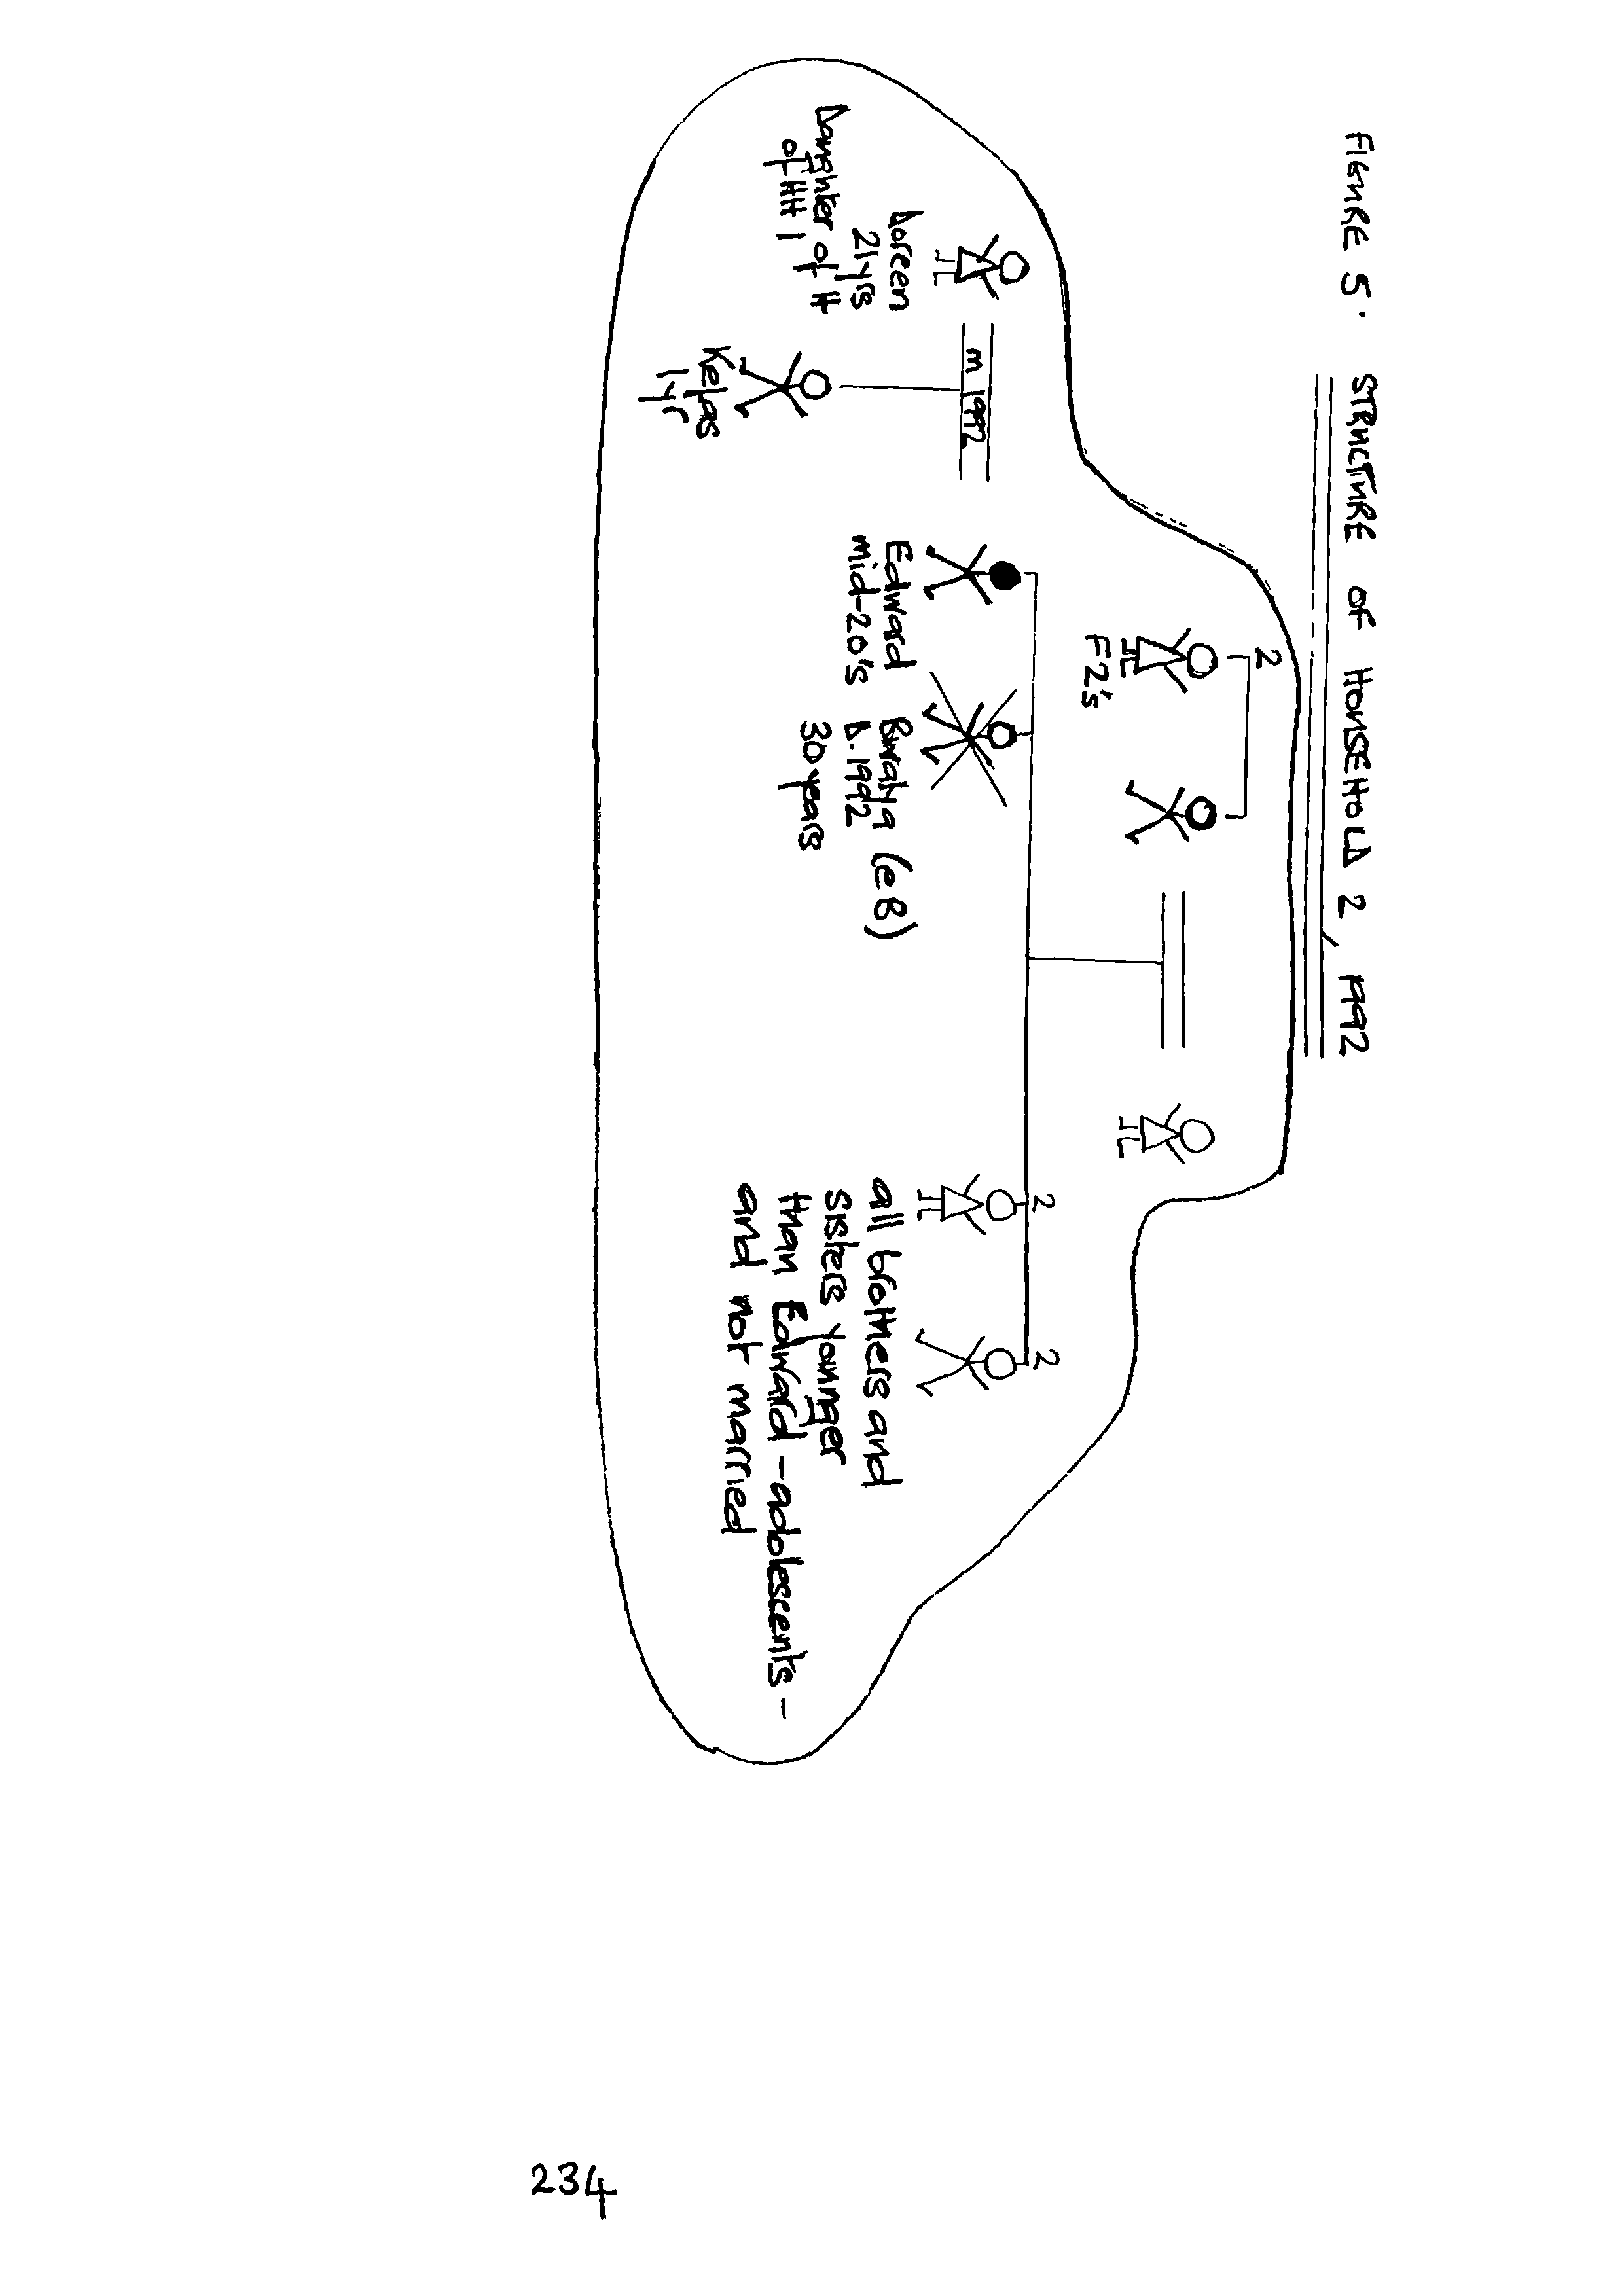 FIGURE 5. STRUCTURE OF HOUSEHOLD 2, 1992
2
F2's
m 1992
2
2
Doreen
21yrs
Daughter of H
of HH 1
Kelps
1yr
Edward
mid-20's
Bwalya (eB)
D.1992
30years
all brothers and
sisters younger
than Edward - adolescents -
and not married
234